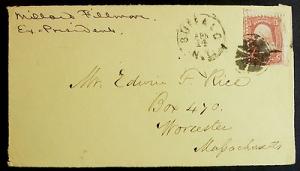 Millard Fillmore
Ex-President.
BUFFALO
APR
N.Y.
Mr. Edwin F. Rice
Box 470.
Worcester
Massachusetts